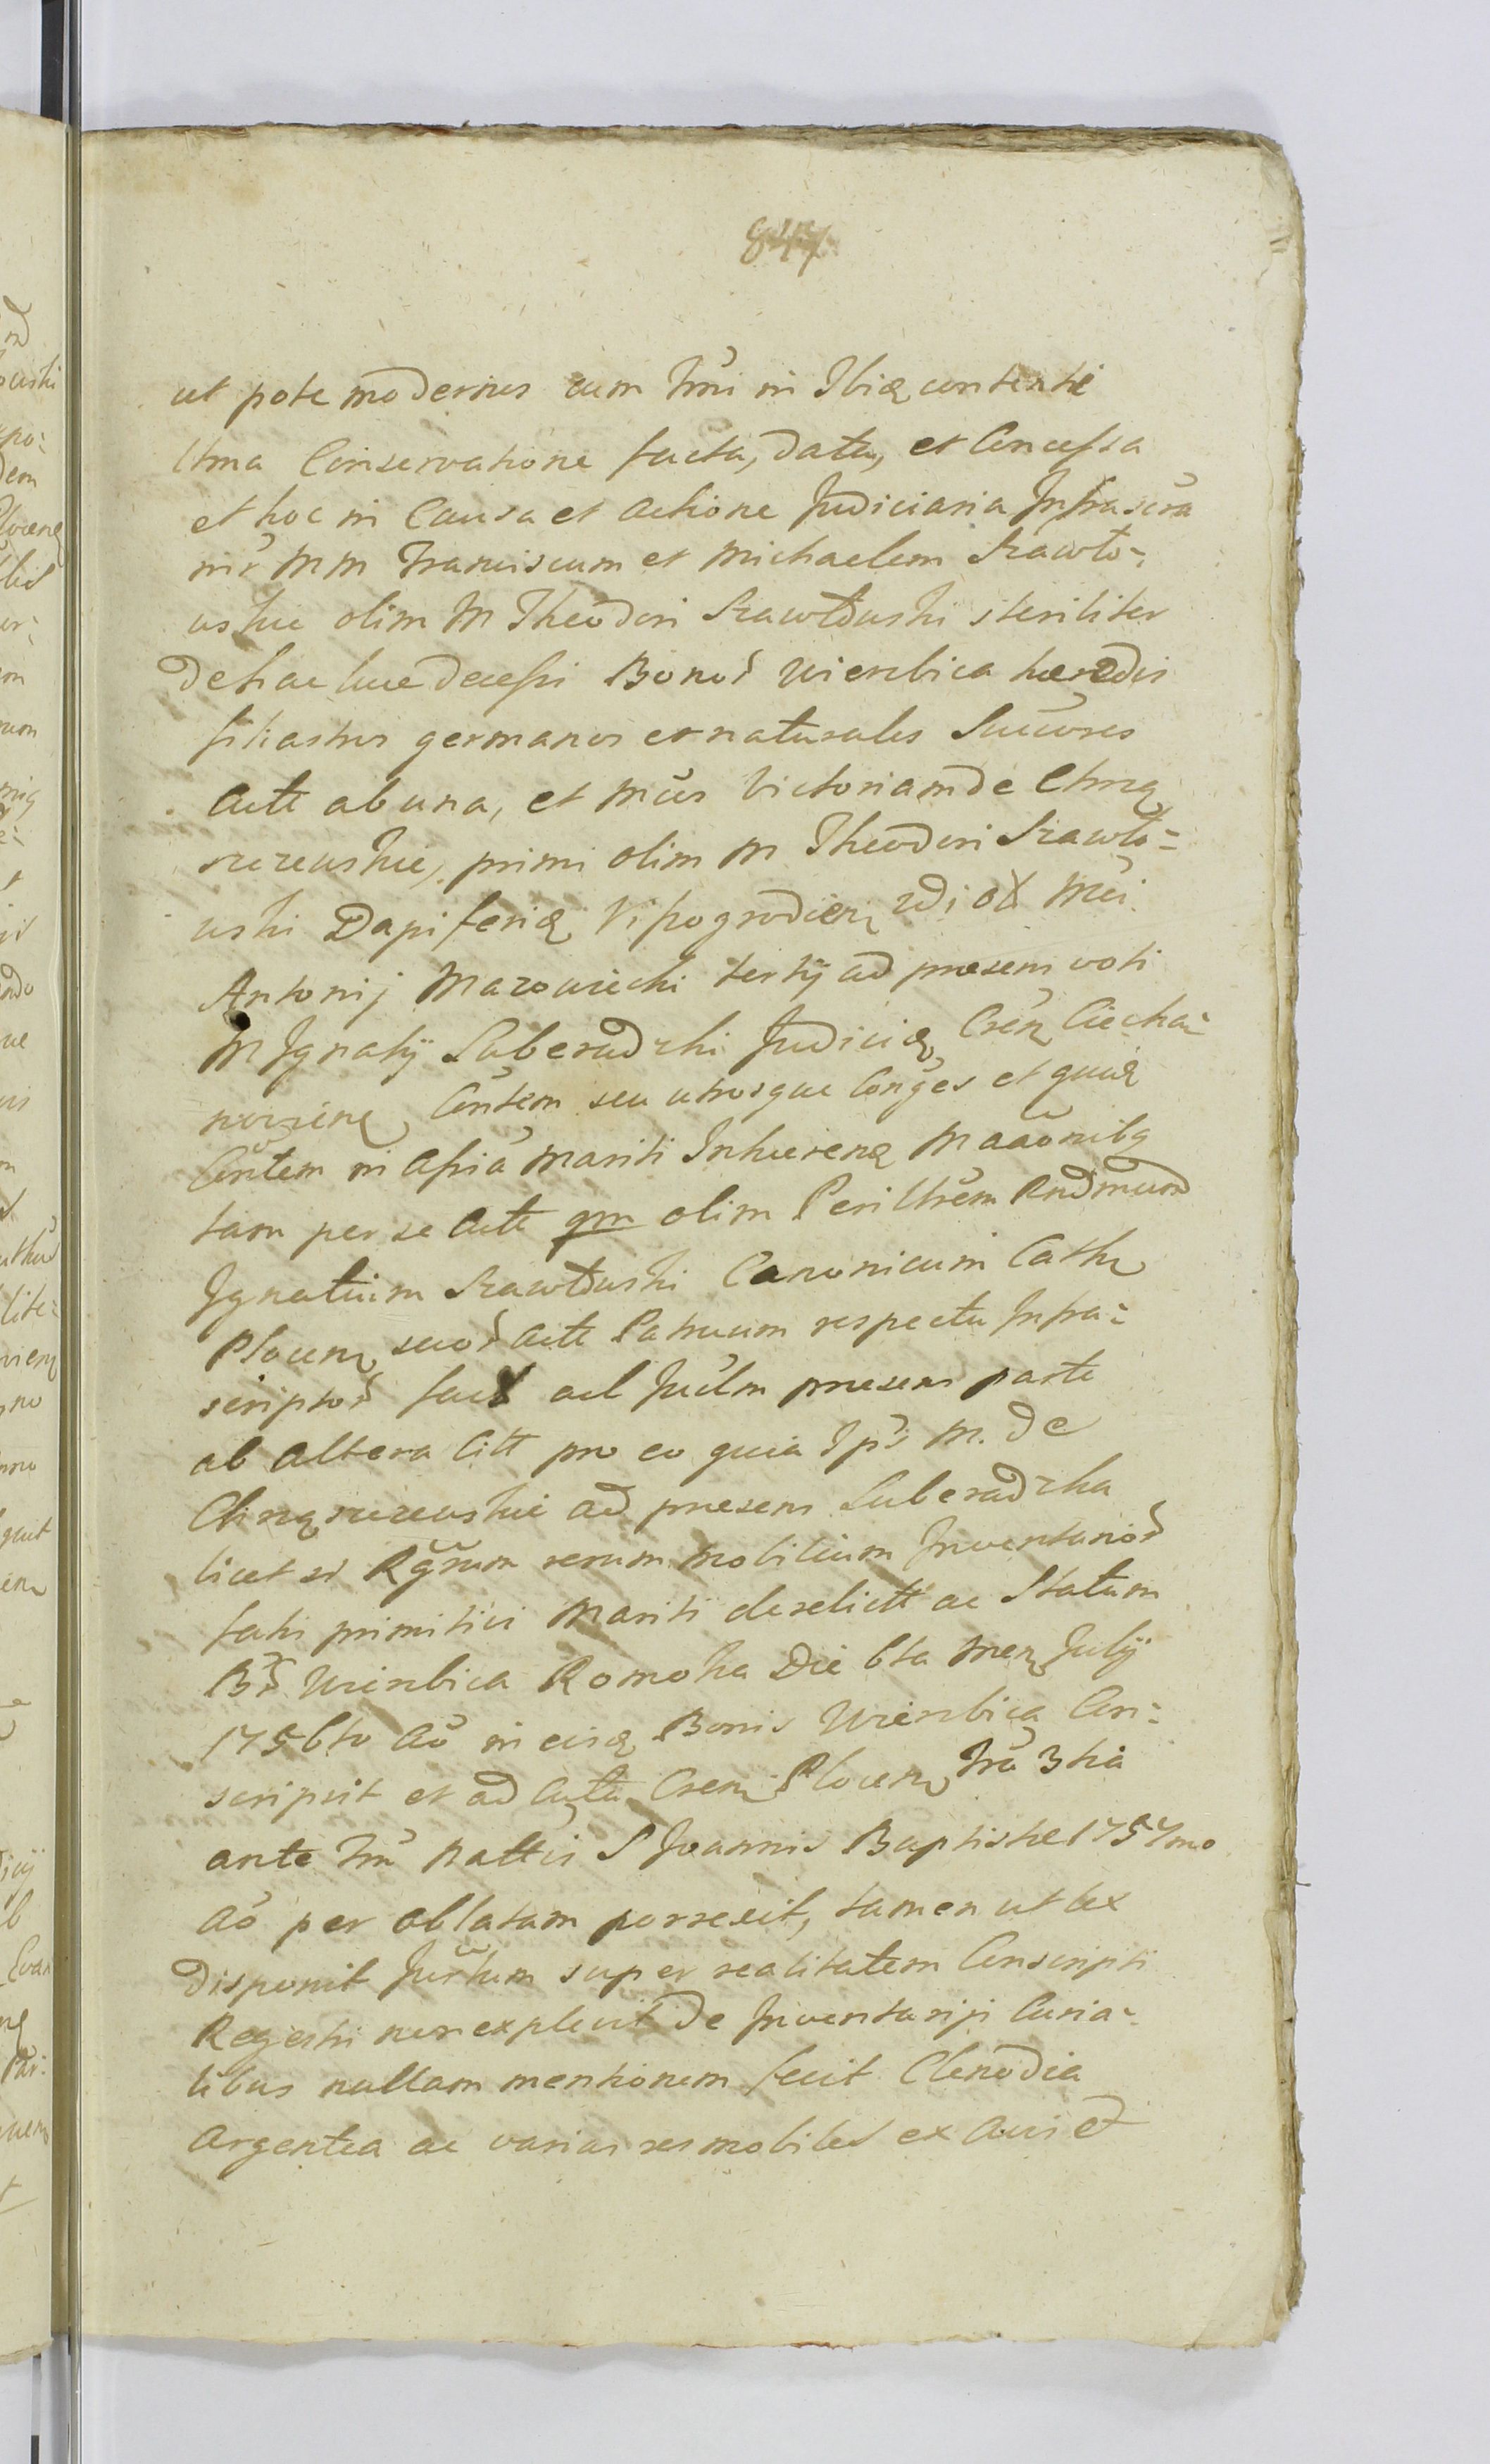 847
ut pote modernus cum Trni in Ibiq contenti
ltma Conservatione facta, data, et Concessa
et hoc in Causa et actione Judiciaria Infrascra
inr MM Franciscum et Michaelem Szawło-
wskie olim M Theodori Szawłowski steriliter
de hac luce decessi Bonor Wierzbica haeredis
filiastros germanos et naturales Sucores
Acte ab una, et Mcos Victoriam de Chmą
rzezewskie, primi olim M Theodori Szawło-
wski Dapiferią
Antonij Mazowiecki tertij ad praesens voti
M Ignatij Suberadzki Judicią Crsen Ciecha-
novien Contem seu utrosque Conges et quią
Contem in Assia mariti Inhaeren Maaonibq
tam per se Acte qm olim Perilltrem Rndmum
Ignatium Szawłowski Canonicum Cath
Plocen suor acte Patruum respectu Infra-
scriptor fact ad Judm praesens parte
ab altera Citt pro eo quia Ipsi M. de
Chmąrzezewskie ad praesens Suberadzka
licet si Rgrum rerum mobilium Inventarior
fati primitivi Mariti derelictt ac Statum
Br Wierzbica Romoka Die 6ta Men Julij
1756to Ao in eisq Bonis Wierzbica Con-
scripsit et ad Acta Crsen Plocen Fra 3tia
ante Fm Nattis S Joannis Baptistae 1757mo
Ao per oblatam porrexit, tamen ut lex
disponit Jurtum super realitatem Conscripti
Regestri non explevit de Inventarijs Curia-
libus nullam mentionem fecit Clenodia
Argentea ac varias res mobiles ex Auro et